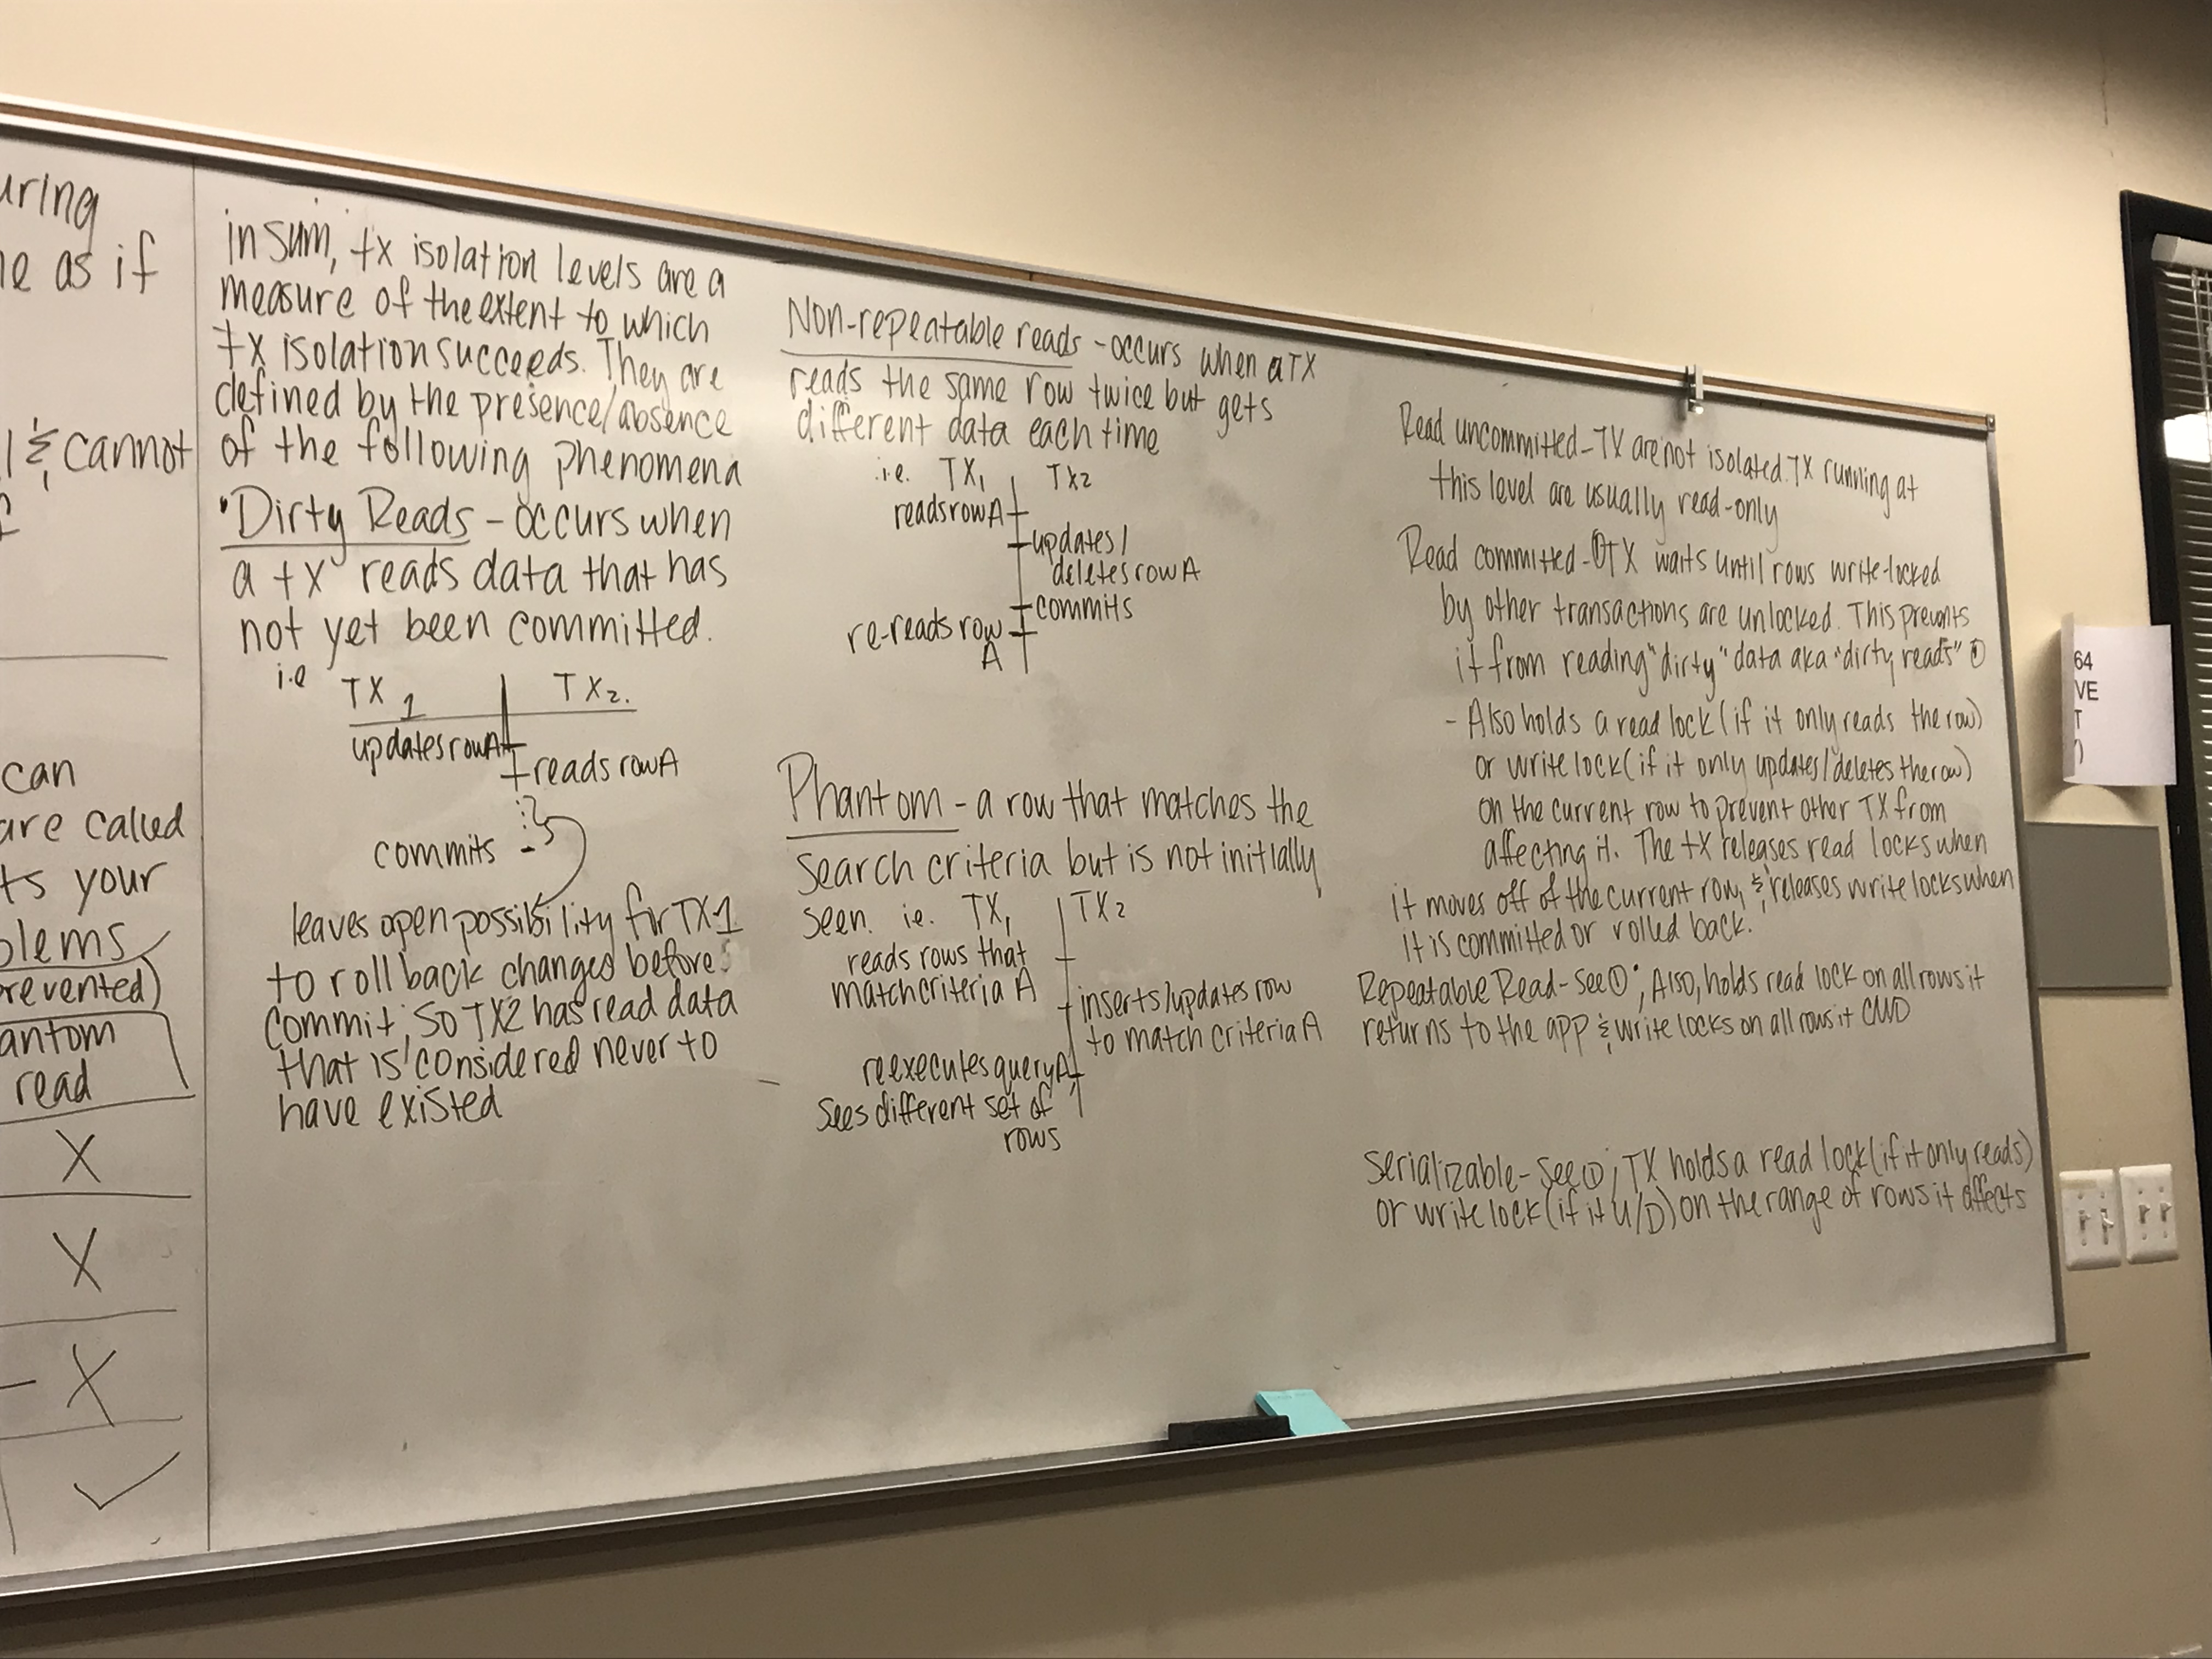 uring
ne as if
l & cannot
f
can
are called
ts your
blems
revented)
antom
read
X
X
- X
✓
in sum, tx isolation levels are a
measure of the extent to which
tx isolation succeeds. They are
defined by the presence/absence
of the following phenomena
"Dirty Reads - occurs when
a tx reads data that has
not yet been committed.
i.e TX 1 TX2.
updates row A
reads row A
commits
leaves open possibility for TX1
to roll back changed before
commit, so TX2 has read data
that is considered never to
have existed
Non-repeatable reads - occurs when a TX
reads the same row twice but gets
different data each time
i.e. TX1 TX2
reads row A
updates/
deletes row A
commits
re-reads row
A
Phantom - a row that matches the
search criteria but is not initially
seen. ie. TX1 TX2
reads rows that
match criteria A
inserts/updates row
to match criteria A
reexecutes query A,
sees different set of
rows
Read uncommitted - TX are not isolated. TX running at
this level are usually read-only
Read committed - ① TX waits until rows write-locked
by other transactions are unlocked. This prevents
it from reading "dirty" data aka "dirty reads" ①
- Also holds a read lock (if it only reads the row)
or write lock (if it only updates/deletes the row)
on the current row to prevent other TX from
affecting it. The tx releases read locks when
it moves off of the current row, & releases write locks when
it is committed or rolled back.
Repeatable Read - see ①; Also, holds read lock on all rows it
returns to the app & write locks on all rows it C/U/D
Serializable - see ①; TX holds a read lock (if it only reads)
or write lock (if it U/D) on the range of rows it affects
64
VE
T
)